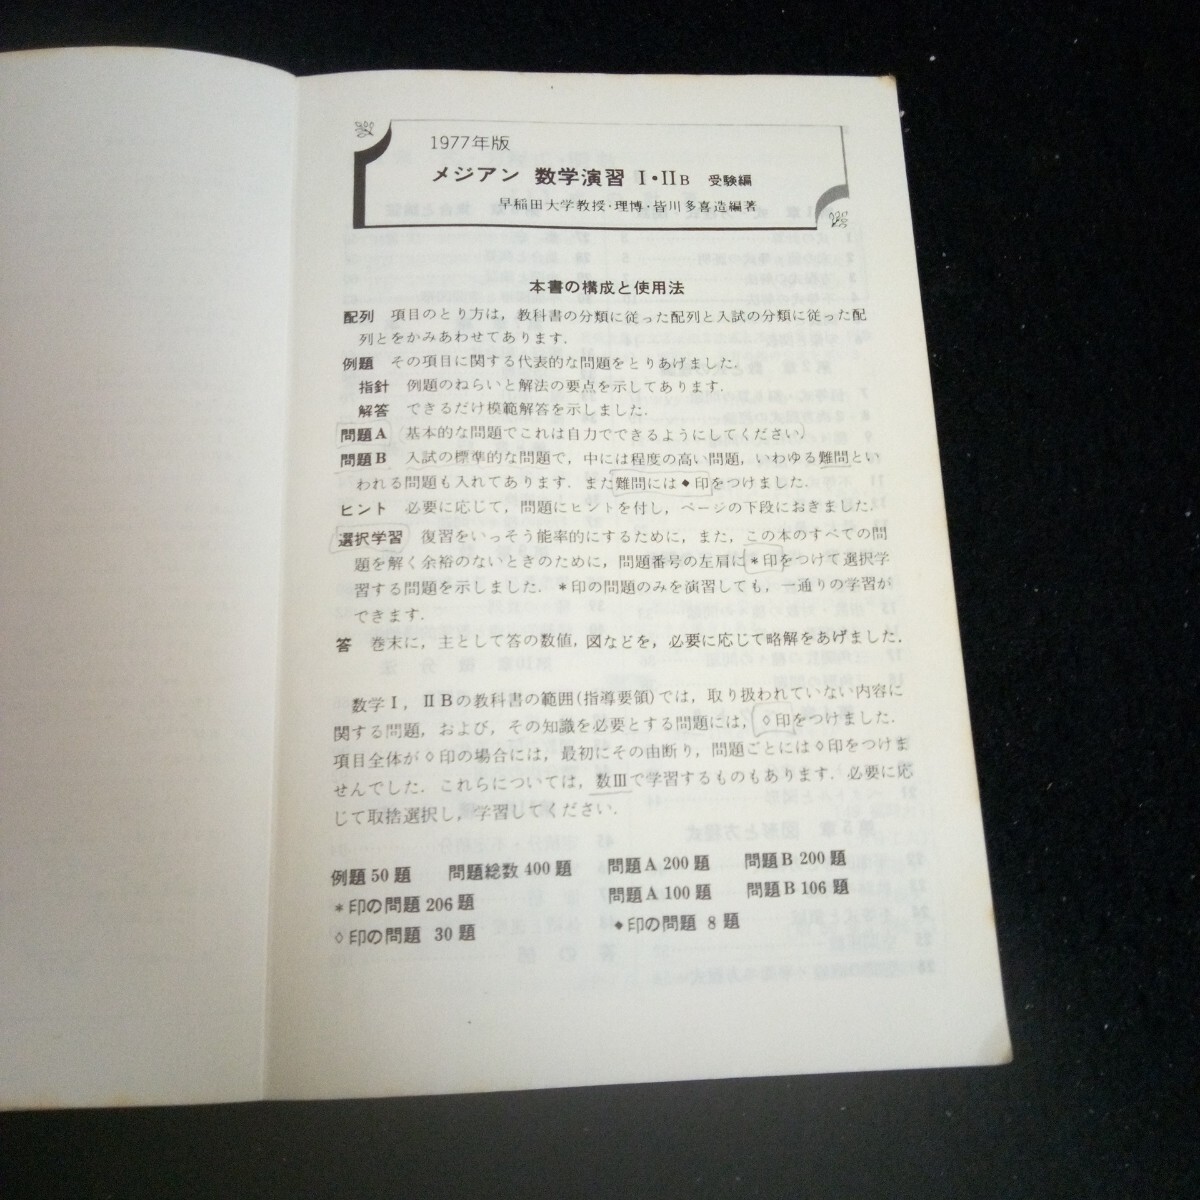 1977年版
メジアン 数学演習 I・IIB 受験編
早稲田大学教授・理博・皆川多喜造編著
本書の構成と使用法
配列 項目のとり方は，教科書の分類に従った配列と入試の分類に従った配
列とをかみあわせてあります．
例題 その項目に関する代表的な問題をとりあげました．
指針 例題のねらいと解法の要点を示してあります．
解答 できるだけ模範解答を示しました．
問題A 基本的な問題でこれは自力でできるようにしてください．
問題B 入試の標準的な問題で，中には程度の高い問題，いわゆる難問とい
われる問題も入れてあります．また難問には◆印をつけました．
ヒント 必要に応じて，問題にヒントを付し，ページの下段におきました．
選択学習 復習をいっそう能率的にするために，また，この本のすべての問
題を解く余裕のないときのために，問題番号の左肩に＊印をつけて選択学
習する問題を示しました．＊印の問題のみを演習しても，一通りの学習が
できます．
答 巻末に，主として答の数値，図などを，必要に応じて略解をあげました．
数学Ⅰ，ⅡBの教科書の範囲(指導要領)では，取り扱われていない内容に
関する問題，および，その知識を必要とする問題には，◇印をつけました．
項目全体が◇印の場合には，最初にその由断り，問題ごとには◇印をつけま
せんでした．これらについては，数Ⅲで学習するものもあります．必要に応
じて取捨選択し，学習してください．
例題 50 題 問題総数 400 題 問題A 200 題 問題B 200 題
＊印の問題 206 題 問題A 100 題 問題B 106 題
◇印の問題 30 題 ◆印の問題 8 題